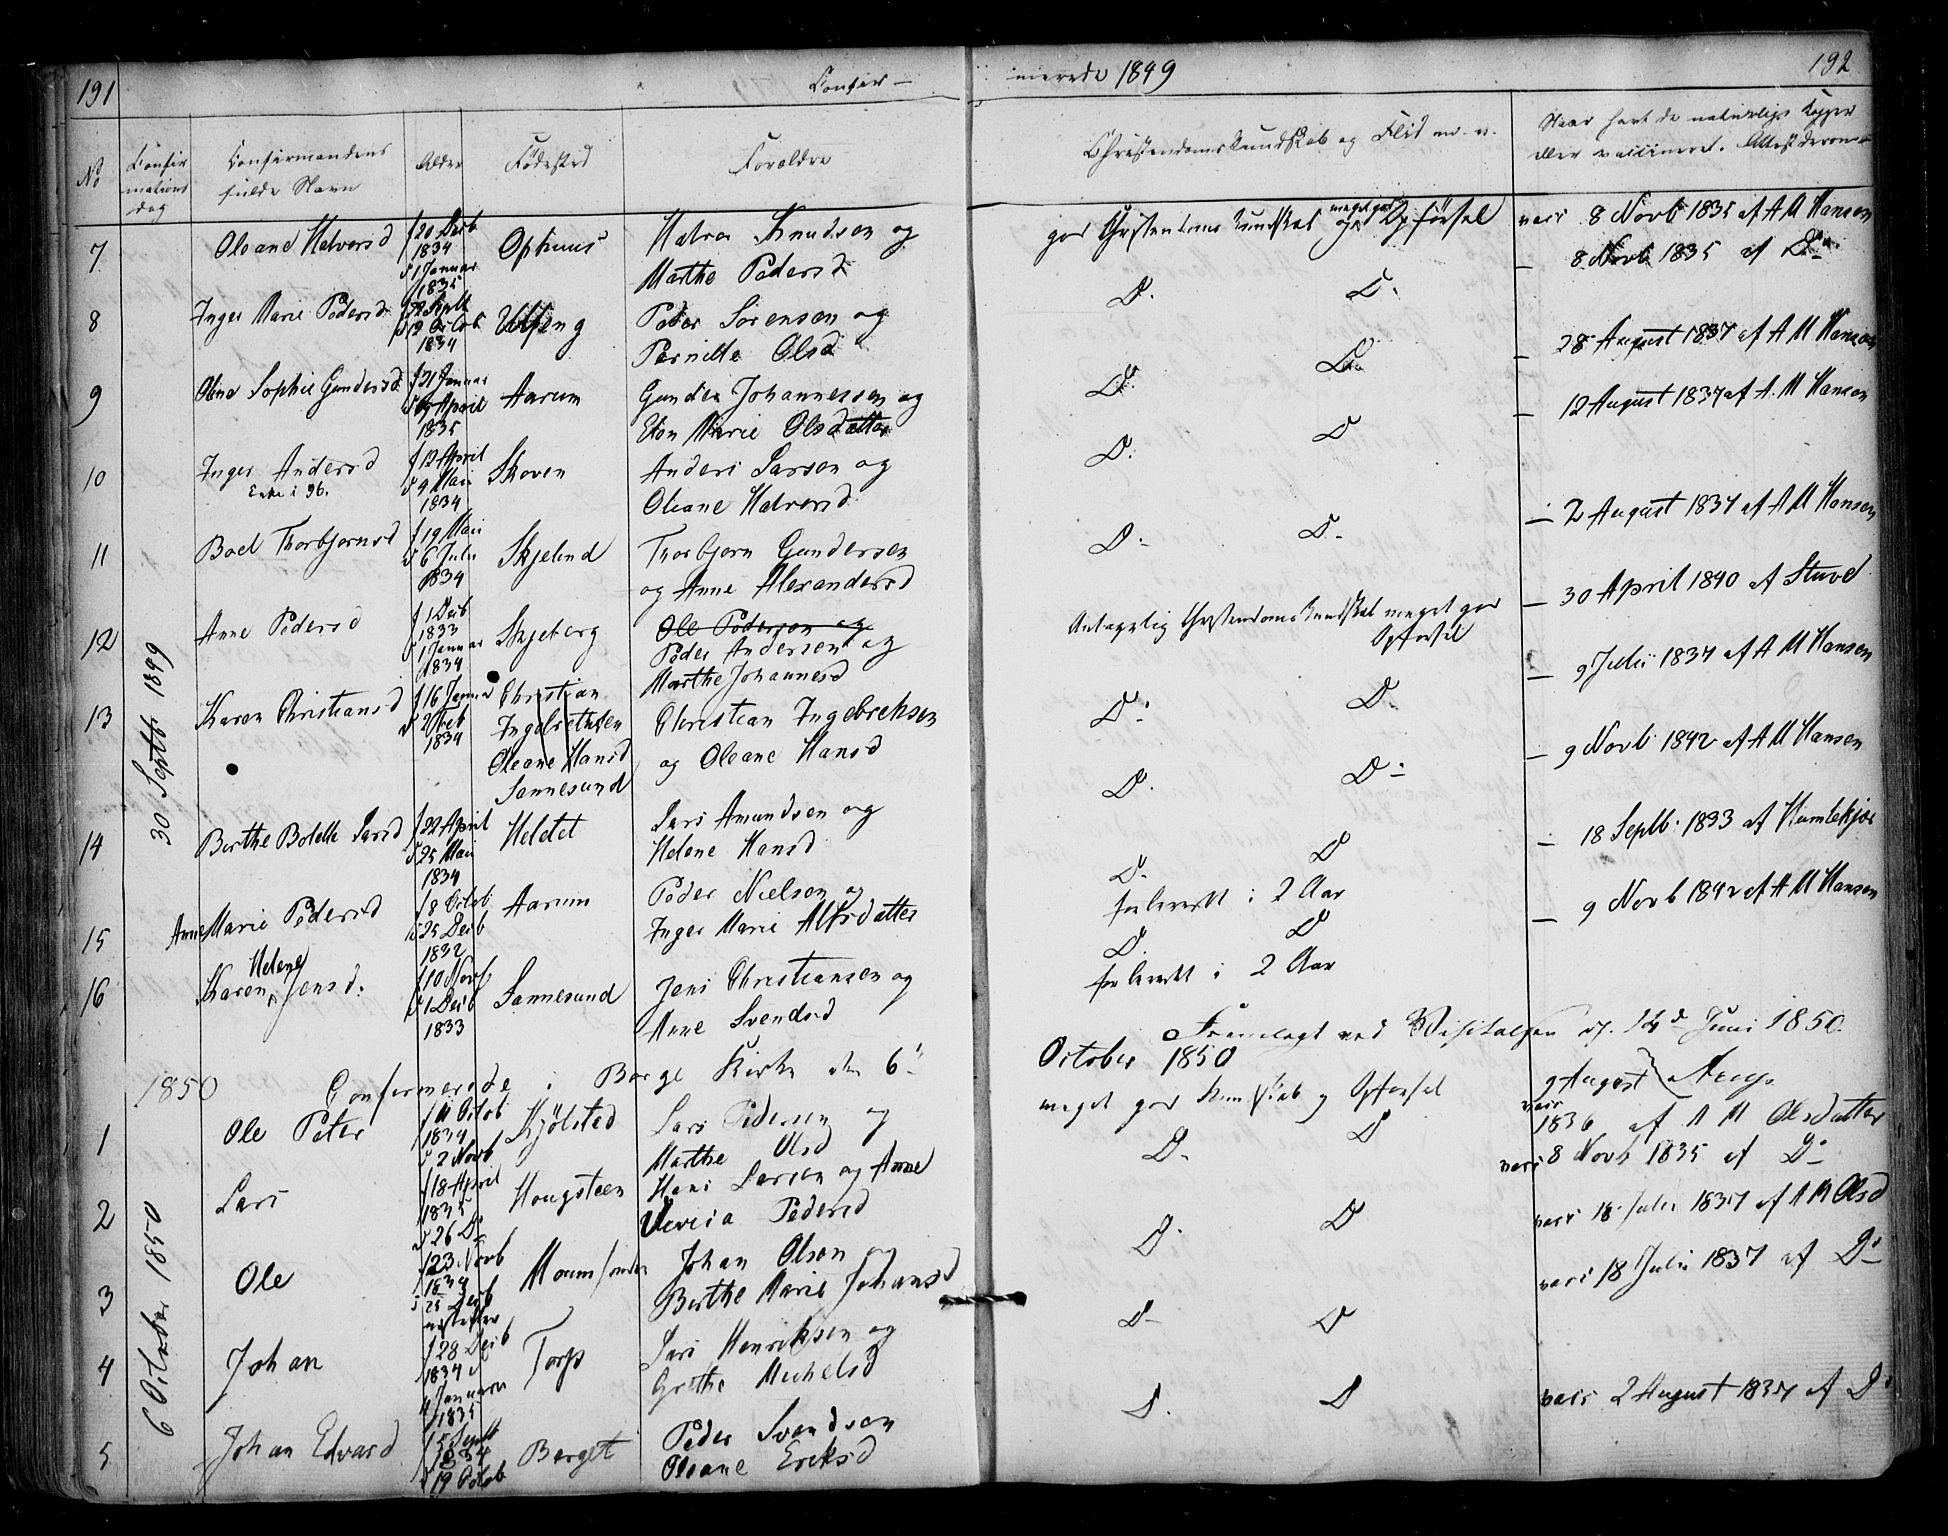 191
Confir-
No
Confir mations dag
Confirmandens fulde Navn
Alder
Fødested
Forældre
30 Septb 1849
7 Oleane Halvorsd f 20 Decb 1834 d 1 Januar 1835 Ophuus Halvor Knudsen og
Marthe Pedersd
8 Inger Marie Pedersd f 22 Septb d 19 Octob 1834 Peder Sørensen og
Pernille Olsd
9 Olene Sophie Gundersd f 21 Januar d April 1835 Aarum Gunder Johannessen og
Marie Olsdatter
10 Inger Andersd f 12 April d 4 Mai 1834 Skoven Anders Larsen og
Enke i 96.
Oleane Halvorsd
11 Boel Thorbjørnsd f 19 Mai d 6 Julii 1834 Skjelind Thorbjørn Gundersen
og Anne Alexandersd
12 Anne Pedersd f 1 Decb 1833 d 1 Januar 1834 Skjeberg Ole Pedersen og
Peder Andersen og
Marthe Johannesd
13 Karen Christiansd f 16 Januar d 2 Feb 1834 Christian Ingebretsen Oleane Hansd Sannesund
Christian Ingebretsen
og Oleane Hansd
14 Berthe Bolette Larsd f 22 April d 25 Mai 1834 Heldet Lars Amundsen og
Helene Hansd
15 Anne Marie Pedersd f 8 Octob d 25 Decb 1832 Aarum Peder Nielsen og
Inger Marie Alfsdatter
16 Karen Helene Jensd. f 10 Novb d 1 Decb 1833 Sannesund Jens Christiansen og
Anne Svendsd
1850 Confirmerede i Borge Kirke den 6
6 October 1850
1 Ole Peter f 11 Octob 1834 d 2 Novb Kjølsted Lars Pedersen og
Marthe Olsd
2 Lars f 18 April 1835 d 26 D Hougsteen Hans Larsen og Anne
Pedersd
3 Ole f 23 Novb 1834 d 25 Decb Moum Johan Olsen og
Berthe Marie Johansd
4 Johan f 28 Decb 1834 d 4 Januar 1835 Torp Lars Henriksen og
Grethe Michelsd
5 Johan Edvard f 5 Septb 1834 d 19 Octob Berget Peder Svendsen
Oleane Eriksd
merede 1849
192
Christendomskundskab og Flid m. v.
Naar havt de naturlige Kopper
eller vaccineret. Attest derom
god Christendomskundskab og meget god Opførsel vacc 8 Novb 1835 af A M Hansen
D. D. - 8 Novb 1835 af Do
D. D. - 28 August 1837 af A M Hansen
D. D - 12 August 1837 af A. M Hansen
D. D. - 2 August 1837 af A M Hansen
Antagelig Christendomskundskab meget god
Opførsel
- 30 April 1840 af Stuvd
D. D. - 9 Julii 1837 af A M Hansen
D. D. - 9 Novb 1842 af A M Hansen
D. D - 18 Septb. 1833 af Humlekjær
forberedt i 2 Aar
D. D - 9 Novb 1842 af A M Hansen
forberedt i 2 Aar
Fremlagt ved Visitatsen d. 14d Juni 1850.
October 1850
Arup.
meget god Kundskab og Opførsel vacc 9 August
1836 af A M Olsdatter
D. D vacc 8 Novb 1835 af D
D. D vacc 18 Julii 1837 af A M Olsd
D D vacc 18 Julii 1837 af D
D. D vacc 2 August 1837 af D